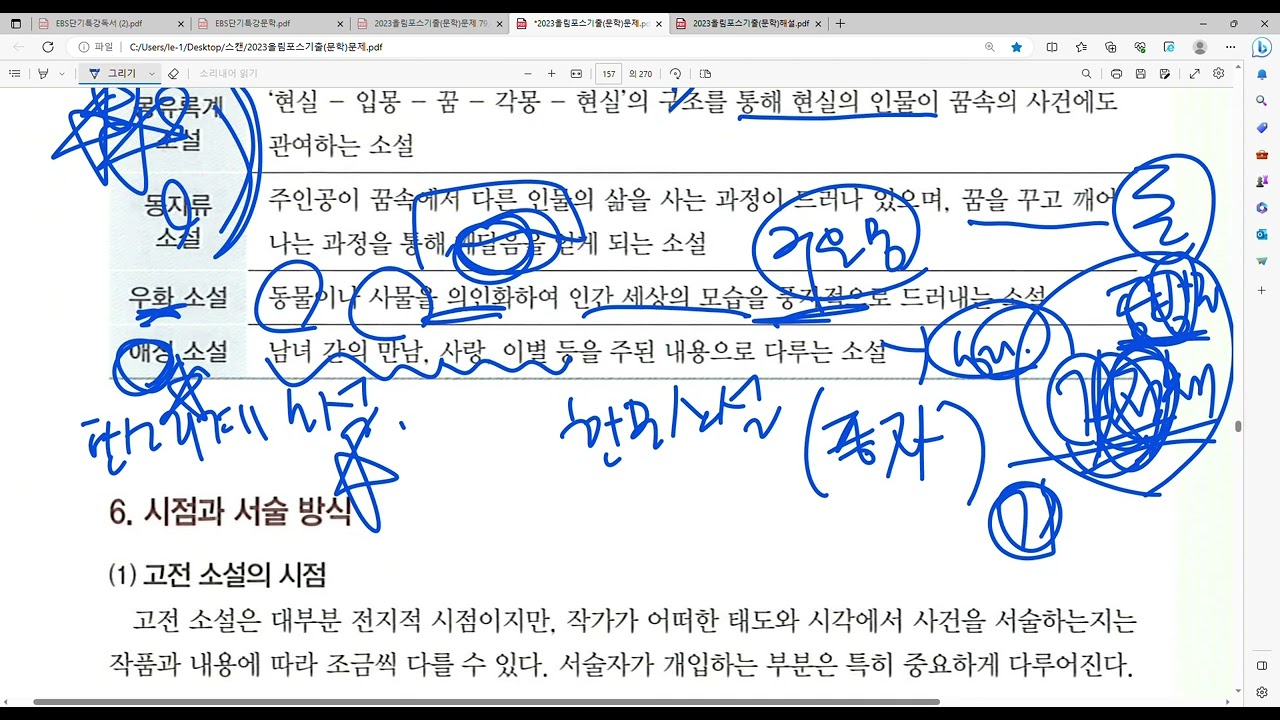 EBS단기특강독서 (2).pdf
EBS단기특강문학.pdf
2023올림포스기출(문학)문제 79
*2023올림포스기출(문학)문제.pd
2023올림포스기출(문학)해설.pdf
파일 C:/Users/le-1/Desktop/스캔/2023올림포스기출(문학)문제.pdf
그리기 소리내어 읽기 157 의 270
몽유록계 소설
'현실 – 입몽 – 꿈 – 각몽 – 현실'의 구조를 통해 현실의 인물이 꿈속의 사건에도
관여하는 소설
몽자류 소설
주인공이 꿈속에서 다른 인물의 삶을 사는 과정이 드러나 있으며, 꿈을 꾸고 깨어
나는 과정을 통해 깨달음을 얻게 되는 소설
우화 소설
동물이나 사물을 의인화하여 인간 세상의 모습을 풍자적으로 드러내는 소설
애정 소설
남녀 간의 만남, 사랑, 이별 등을 주된 내용으로 다루는 소설
(풍자)
6. 시점과 서술 방식
(1) 고전 소설의 시점
고전 소설은 대부분 전지적 시점이지만, 작가가 어떠한 태도와 시각에서 사건을 서술하는지는
작품과 내용에 따라 조금씩 다를 수 있다. 서술자가 개입하는 부분은 특히 중요하게 다루어진다.